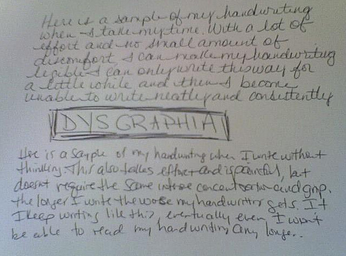 Here is a sample of my handwriting
when I take my time. With a lot of
effort and no small amount of
discomfort, I can make my handwriting
legible. I can only write this way for
a little while and then I become
unable to write neatly and consistently
DYSGRAPHIA
Here is a sayple of my handwriting when I write without
thinking. This also takes effort and is painful, but
doesnt require the same intense concentration and grip.
the longer I write the worse my handwriting gets. If
I keep writing like this, eventually even I won't
be able to read my handwriting any longer.